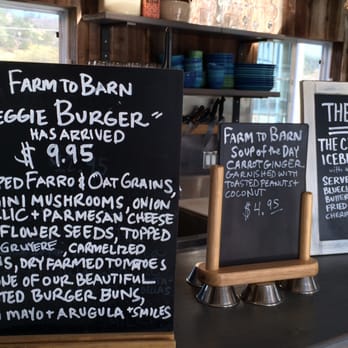 FARM TO BARN
EGGIE BURGER"
HAS ARRIVED
$ 9.95
PED FARRO & OAT GRAINS,
INI MUSHROOMS, ONION
LIC + PARMESAN CHEESE
FLOWER SEEDS, TOPPED
GRUYERE, CARMELIZED
S, DRY FARMED TOMATOES
NE OF OUR BEAUTIFUL
TED BURGER BUNS,
MAYO + ARUGULA + SMILES
FARM TO BARN
SOUP OF THE DAY
CARROT GINGER
GARNISHED WITH
TOASTED PEANUTS +
COCONUT
$4.95
THE
THE C
ICEB
SERVE
BLUECH
BUTTE
FRIED
CHER